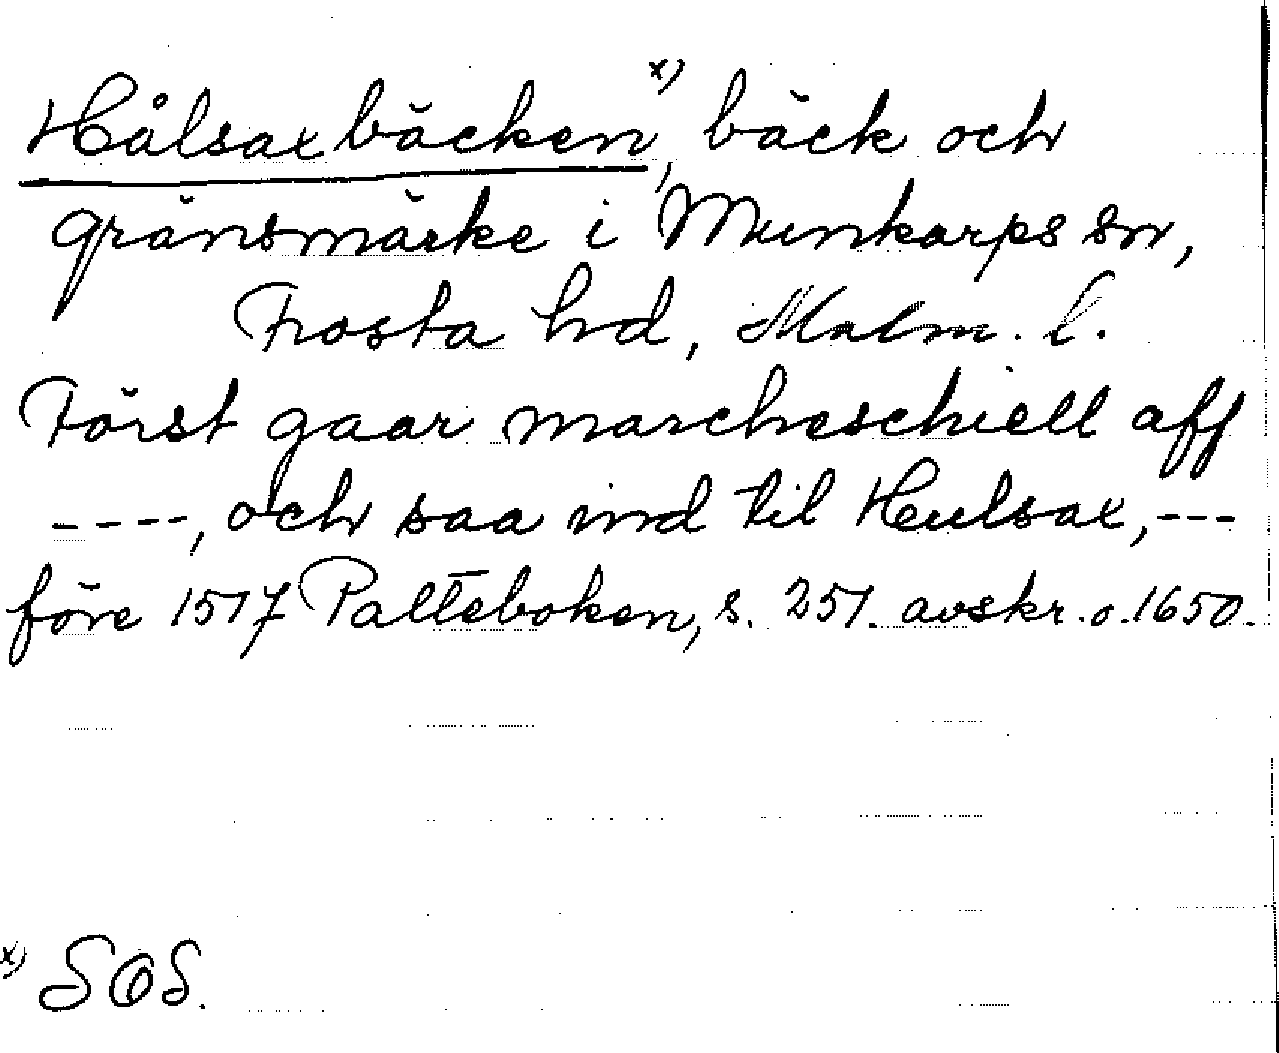 Hålsaxbäcken x), bäck och
gränsmärke i Munkarps sn,
Frosta hd, Malm. l.
Först gaar marcheschiell aff
----, och saa ind til Hulsax, ---
före 1517 Palteboken, s. 251. avskr. o. 1650.
x) SOS.